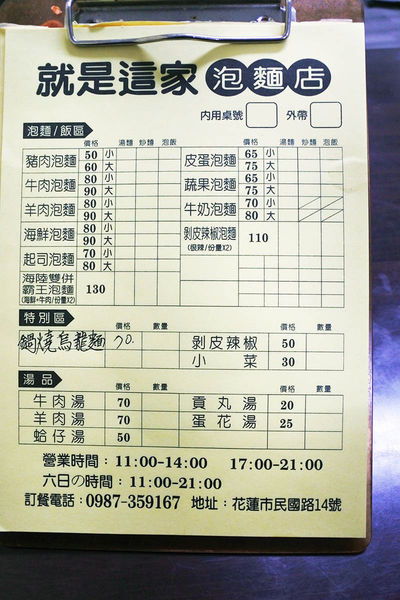 就是這家泡麵店
內用桌號 外帶
泡麵/飯區 價格 湯麵 炒麵 泡飯 價格 湯麵 炒麵 泡飯
豬肉泡麵 50 小 60 大 皮蛋泡麵 65 小 75 大
牛肉泡麵 80 小 90 大 蔬果泡麵 65 小 75 大
羊肉泡麵 80 小 90 大 牛奶泡麵 70 小 80 大
海鮮泡麵 80 小 90 大 剝皮辣椒泡麵 (很辣/份量X2) 110
起司泡麵 70 小 80 大
海陸雙併
霸王泡麵 130
(海鮮+牛肉/份量X2)
特別區 價格 數量 價格 數量
鍋燒烏龍麵 70. 剝皮辣椒 50
小菜 30
湯品 價格 數量 價格 數量
牛肉湯 70 貢丸湯 20
羊肉湯 70 蛋花湯 25
蛤仔湯 50
營業時間：11:00-14:00 17:00-21:00
六日の時間：11:00-21:00
訂餐電話：0987-359167 地址：花蓮市民國路14號